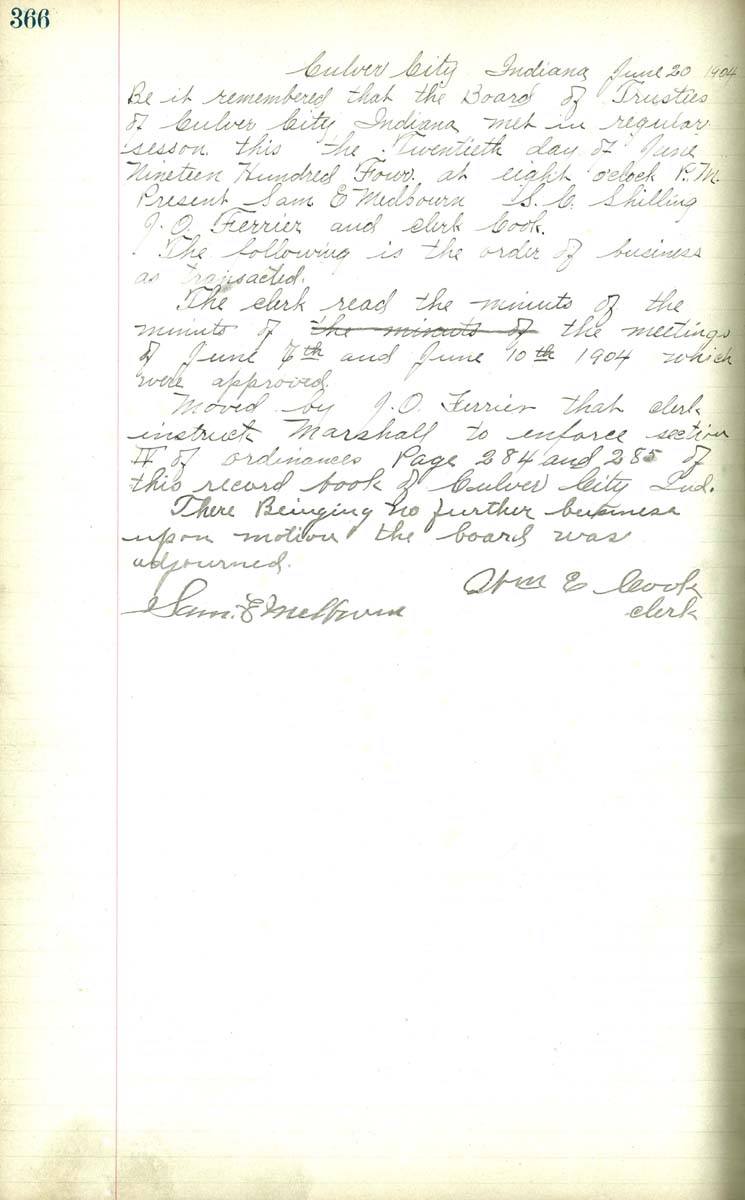 366
Culver City Indiana June 20 1904
Be it remembered that the Board of Trusties
of Culver City Indiana met in regular
sesson this the Twentieth day of June
Nineteen Hundred Four at eight o'clock P.M.
Present Sam E Medbourn S. C. Shilling
J. O. Ferrier and clerk Cook.
The following is the order of business
as transacted.
The clerk read the minuts of the
minuts of the minuts of the meetings
of June 7th and June 10th 1904 which
were approved.
Moved by J. O. Ferrier that clerk
instruct Marshall to enforce section
IV of ordinances Page 284 and 285 of
this record book of Culver City Ind.
There Beinging no further business
upon motion the board was
adjourned.
Wm E Cook
Sam. E Medbourn
clerk